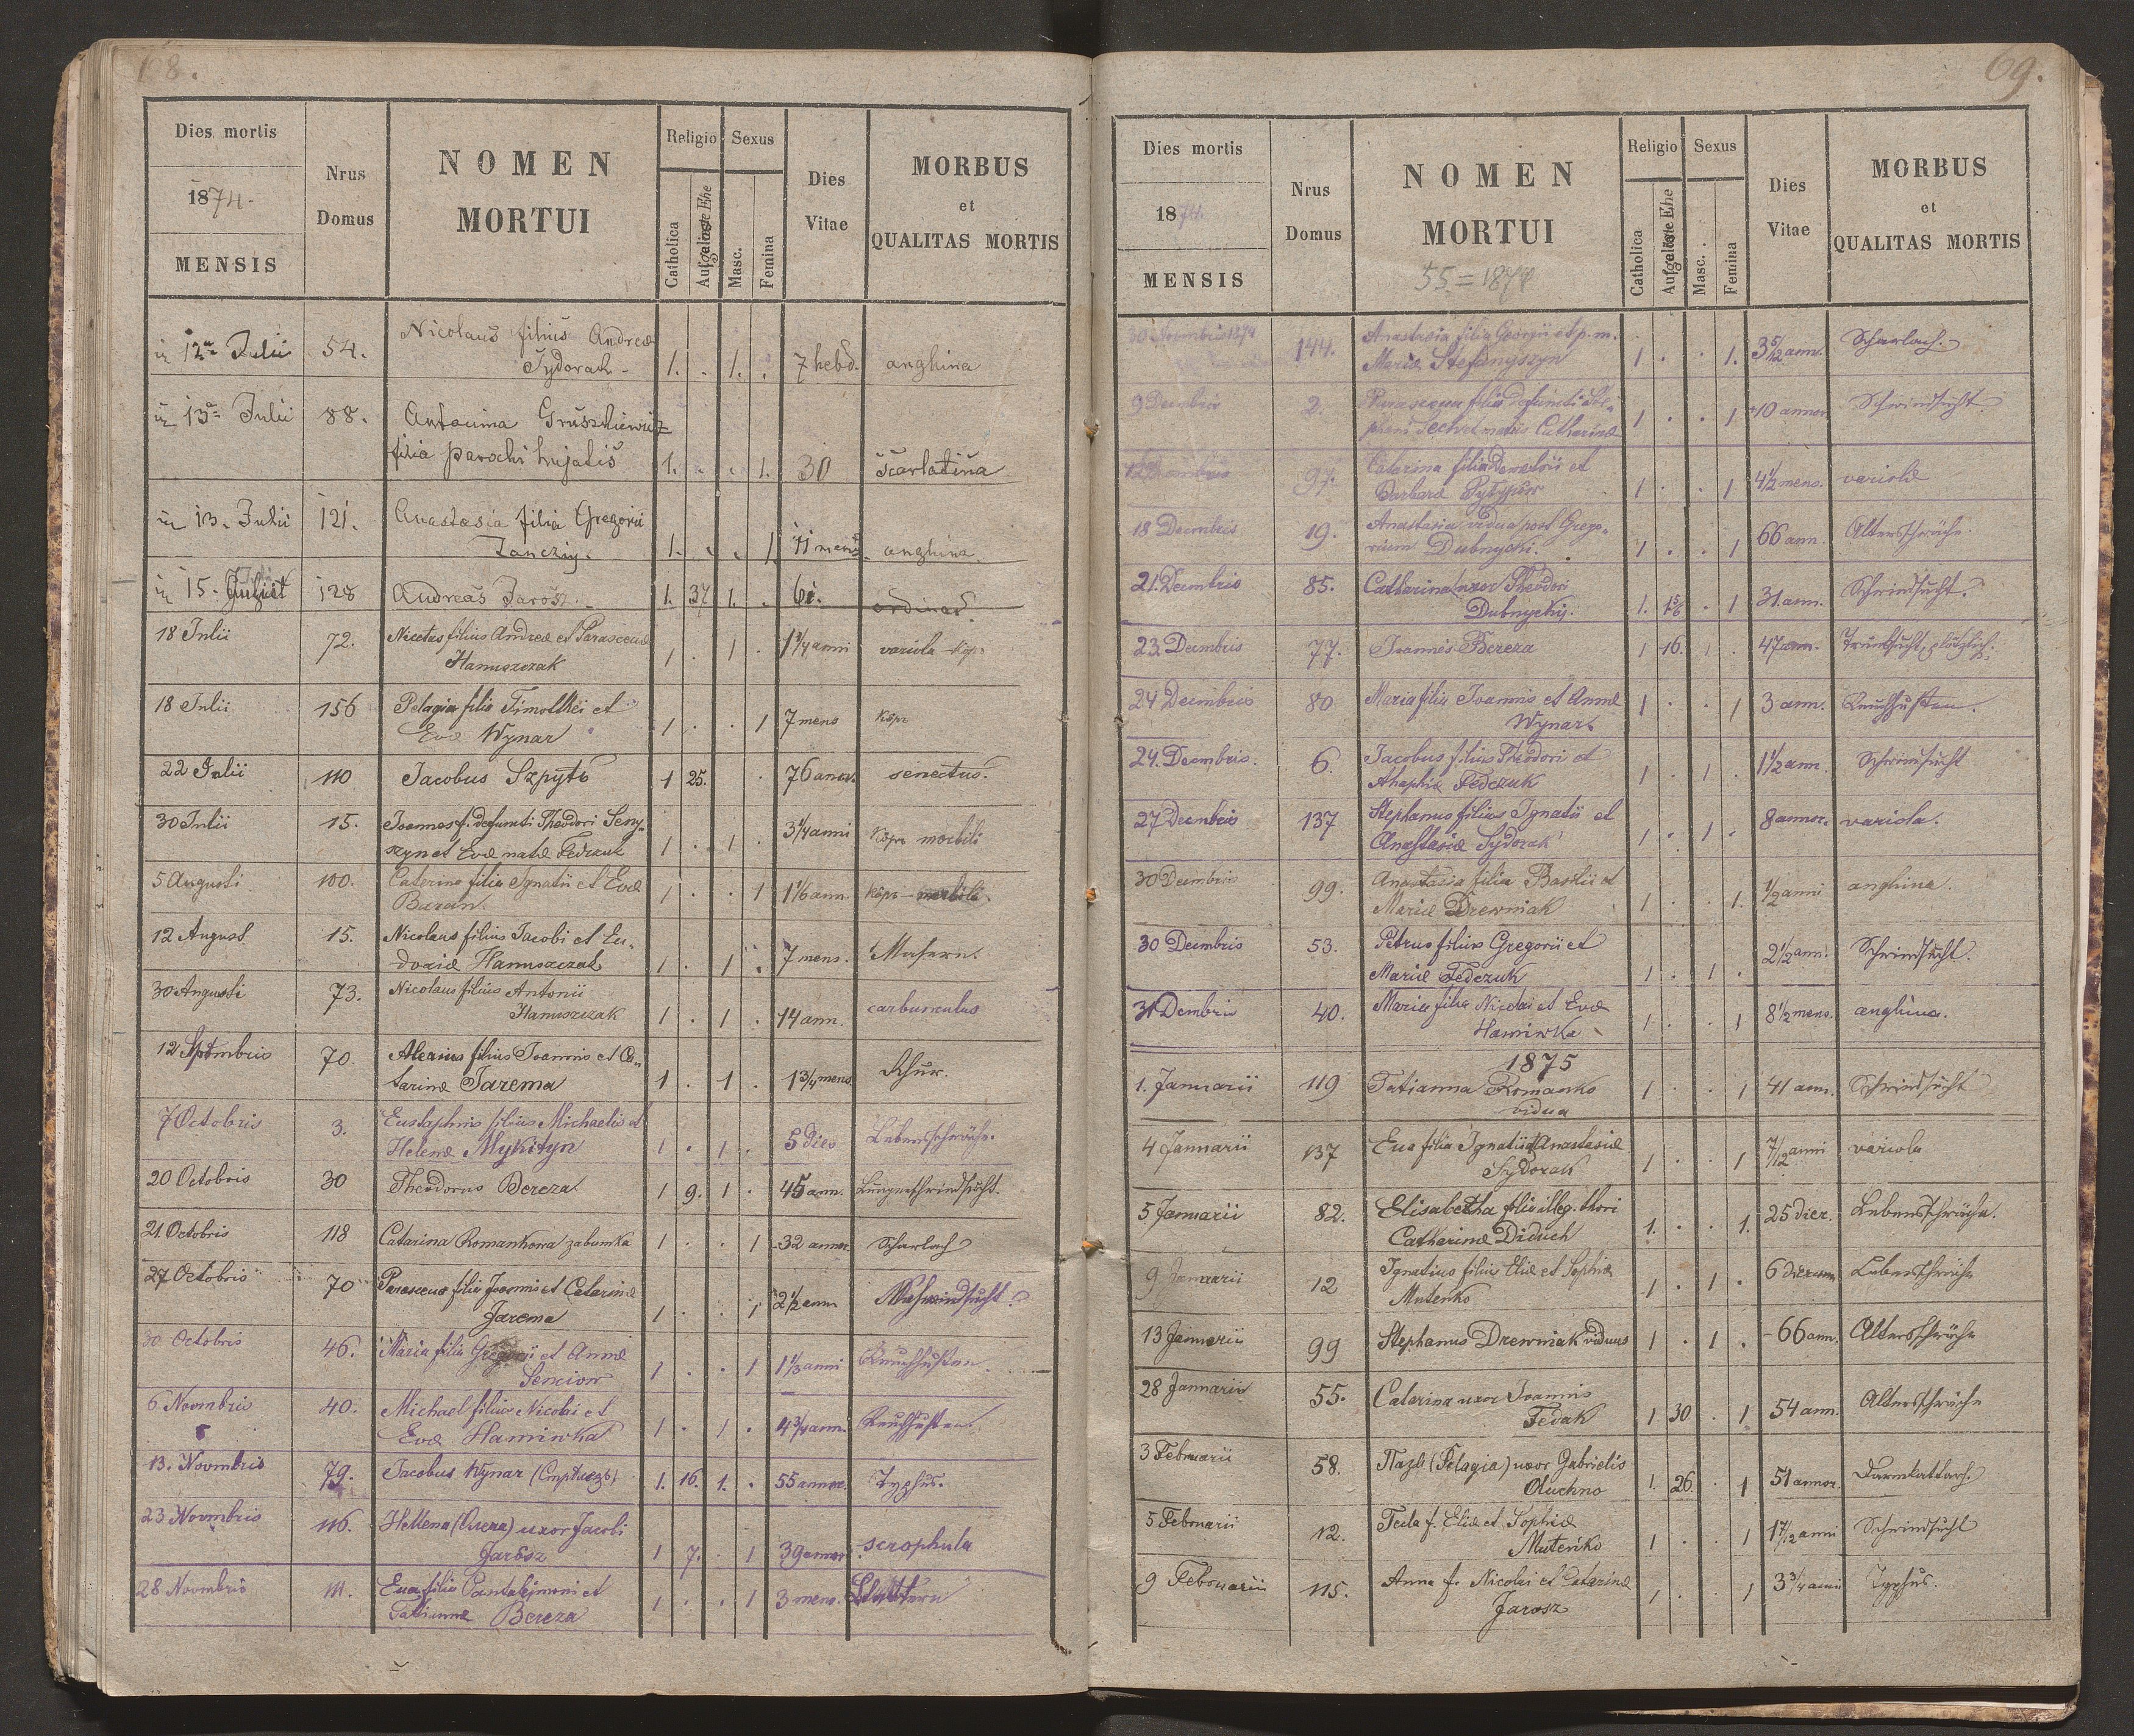 68.
Dies mortis
1874.
MENSIS
Nrus
Domus
NOMEN
MORTUI
Religio
Catholica
Aufgelöste Ehe
Sexus
Masc.
Femina
Dies
Vitae
MORBUS
et
QUALITAS MORTIS
12 Julii 54. Nicolaus filius Andreæ
Sydorak 1. . 1. . 7 hebd. anghina
13 Julii 88. Antonina Gruszkiewicz
filia parochi hujatis 1. . . 1. 30 scarlatina
13. Julii 121. Anastasia filia Gregorii
Janczÿ. 1. . . 1. 11 mens. anghina
15. 128 Andreas Jarosz. 1. 37 1. . 61. ordinar.
18 Julii 72. Nicetas filius Andreæ et Parascevæ
Hanuszczak 1 . 1 . 1 1/4 anni variola
18 Julii 156 Pelagia filia Timothei et
Evæ Wynar 1 . . 1 7 mens
22 Julii 110 Jacobus Szpytь 1 25. . 76 annor. senectus.
30 Julii 15. Joannes f. defuncti Theodori Seny-
szyn et Evæ natæ Fedczuk 1 . 1 . 3 1/4 anni morbili
5 Augusti 100. Caterina filia Ignatii et Evæ
Baran. 1 . . 1 1 1/6 ann. morbili
12 August 15. Nicolaus filius Jacobi et Eu-
doxiæ Hanuszczak 1 . 1 . 7 mens. Masern.
30 Augusti 73. Nicolaus filius Antonii
Hanuszczak 1 . 1 . 14 ann. carbunculus
12 Septmbris 70. Alexius filius Joannis et Ca-
tarinæ Jarema 1 . 1 . 1 3/4 mens Ruhr.
7 Octobris 3. Eustaphius filius Michaelis et
Helenæ Mykityn 1 . 1 . 5 dies Lebensschwäche.
20 Octobris 30 Theodorus Bereza 1 9. 1 . 45 ann. Lungenschwindsucht.
21. Octobris 118 Catarina Romankowa zabunka 1 . . 1 32 annor. Scharlach
27 Octobris 70 Parasceva filia Joannis et Catarinæ
Jarema 1 . . 1 2 1/2 ann Schwindsucht
30 Octobris 46. Maria filia Gregorii et Annæ
Senciow 1 . . 1 1 1/3 anni Keuchhusten.
6 Novmbris 40. Michael filius Nicolai et
Evæ Haminka 1 . 1 . 4 3/4 ann. Keuchhusten.
13. Novmbris 79. Jacobus Wynar 1. 16. 1. . 55 annor. Typhus.
23 Novmbris 116. Hellena uxor Jacobi
Jarosz 1 7. . 1 39 annor. scrophula
28 Novmbris 111. Eva filia Pantalejmoni et
Tatiannæ Bereza 1 . . 1 3 mens. Blattern
69.
Dies mortis
1874.
MENSIS
Nrus
Domus
NOMEN
MORTUI
55 = 1874
Religio
Catholica
Aufgelöste Ehe
Sexus
Masc.
Femina
Dies
Vitae
MORBUS
et
QUALITAS MORTIS
30 Novmbris 1874 144. Anastasia filia Georgii et p. m.
Mariæ Stefanyszyn 1 . . 1. 3 5/12 ann. Scharlach.
9 Decmbris 2. Parasceva filia defuncti Ste-
phani matris Catharinæ 1 . . 1 10 annor Schwindsucht.
12 Decmbris 97. Caterina filia Demetrii et
Barbaræ 1 . . 1 4 1/2 mens. variolæ
18 Decmbris 19. Anastasia vidua post Grego-
rium Dubnycki. 1 . . 1 66 ann. Altersschwäche.
21. Decmbris 85. Catharina uxor Theodori
Dubnyckij. 1. . 1 31. ann. Schwindsucht.
23. Decmbris 77. Joannes Bereza 1 16. 1 . 47 ann. Trunksucht, plötzlich.
24 Decmbris 80 Maria filia Joannis et Annæ
Wynar. 1 . . 1 3 ann. Keuchhusten.
24. Decmbris. 6. Jacobus filius Theodori et
Ahaphiæ Fedczuk 1 . 1 . 1 1/2 ann. Schwindsucht
27 Decmbris 137 Stephanus filius Ignatii et
Anastasiæ Sydorak 1 . 1 . 8 annor. variola.
30 Decmbris 99. Anastasia filia Basilii et
Mariæ Drewniak 1 . . 1. 1/2 anni anghina.
30 Decmbris 53. Petrus filius Gregorii et
Mariæ Fedczuk 1 . 1 . 2 1/2 ann. Schwindsucht.
31 Dembris 40. Maria filia Nicolai et Evæ
Haminka 1 . . 1 8 1/2 mens. anghina.
1875
1. Januarii 119 Tatianna Romanko
vidua 1 . . 1 41 ann. Schwindsucht
4 Januarii 137 Eva filia Ignatii et Anastasiæ
Sydorak 1 . . 1 7/12 anni variola
5 Januarii 82. Elisabetha filia illeg. thori
Catharinæ Diduch 1. . . 1. 25 dier. Lebensschwäche.
9 Januarii 12 Ignatius filius Eliæ et Sophiæ
Mutenko 1 . 1 . 6 dierum Lebensschwäche
13 Januarii 99 Stephanus Drewniak viduus 1 . 1 . 66 ann. Altersschwäche
28 Januarii 55. Catarina uxor Joannis
Fedak 1 30 . 1 54 ann. Altersschwäche
3 Februarii 58. (Pelagia) uxor Gabrielis
Oluchno 1. 26. . 1 51 annor. Darmkattarh.
5. Februarii 12. Tecla f. Eliæ et Sophiæ
Mutenko 1 . . 1 1 7/12 anni Schwindsucht
9 Februarii 115. Anna f. Nicolai et Catarinæ
Jarosz 1 . . 1 3 3/4 anni Typhus.